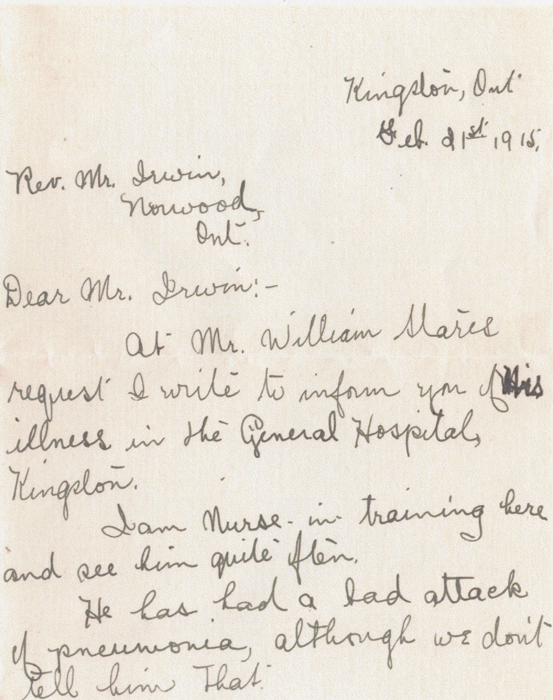 Kingston, Ont.
Feb. 21st, 1915.
Rev. Mr. Irwin,
Norwood,
Ont.
Dear Mr. Irwin:-
At Mr. William
request I write to inform you of his
illness in the General Hospital,
Kingston.
I am Nurse-in-training here
and see him quite often.
He has had a bad attack
of pneumonia, although we don't
tell him that.